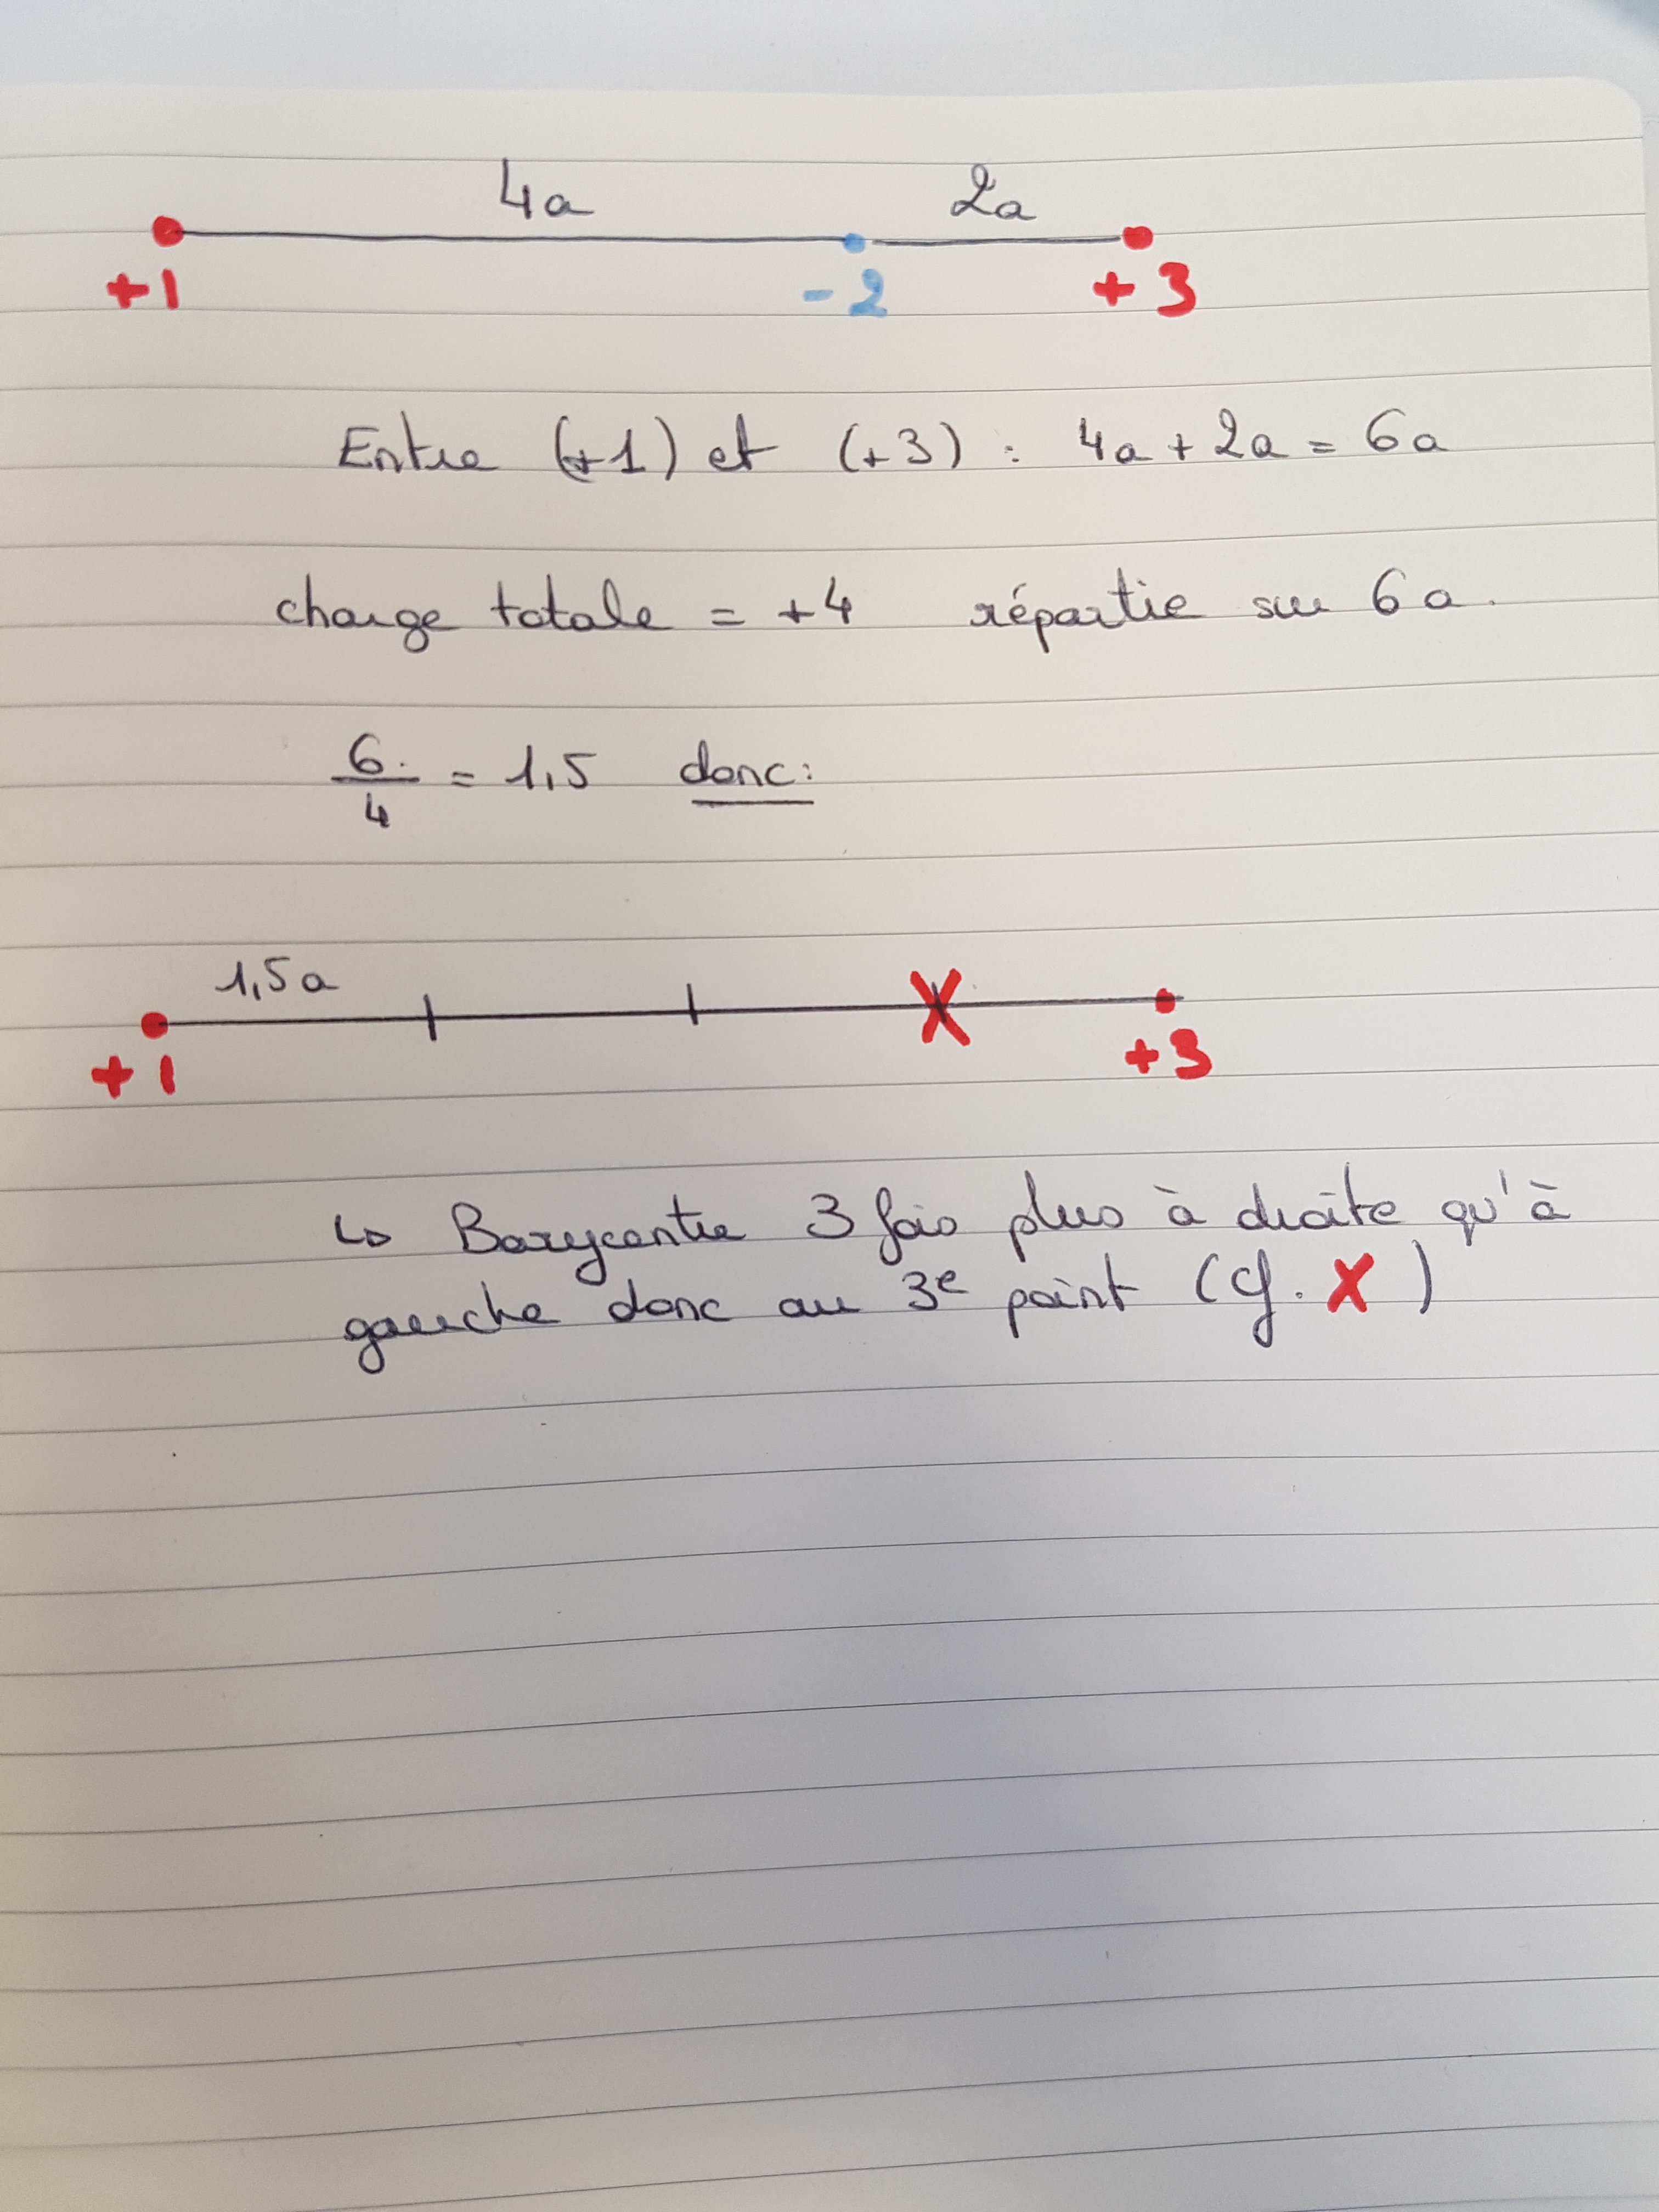 4a 2a
+1 -2 +3
Entre (+1) et (+3) : 4a + 2a = 6a
charge totale = +4 répartie sur 6a.
6/4 = 1,5 donc:
1,5a
+1 X +3
↳ Barycentre 3 fois plus à droite qu'à
gauche donc au 3e point (cf. X)